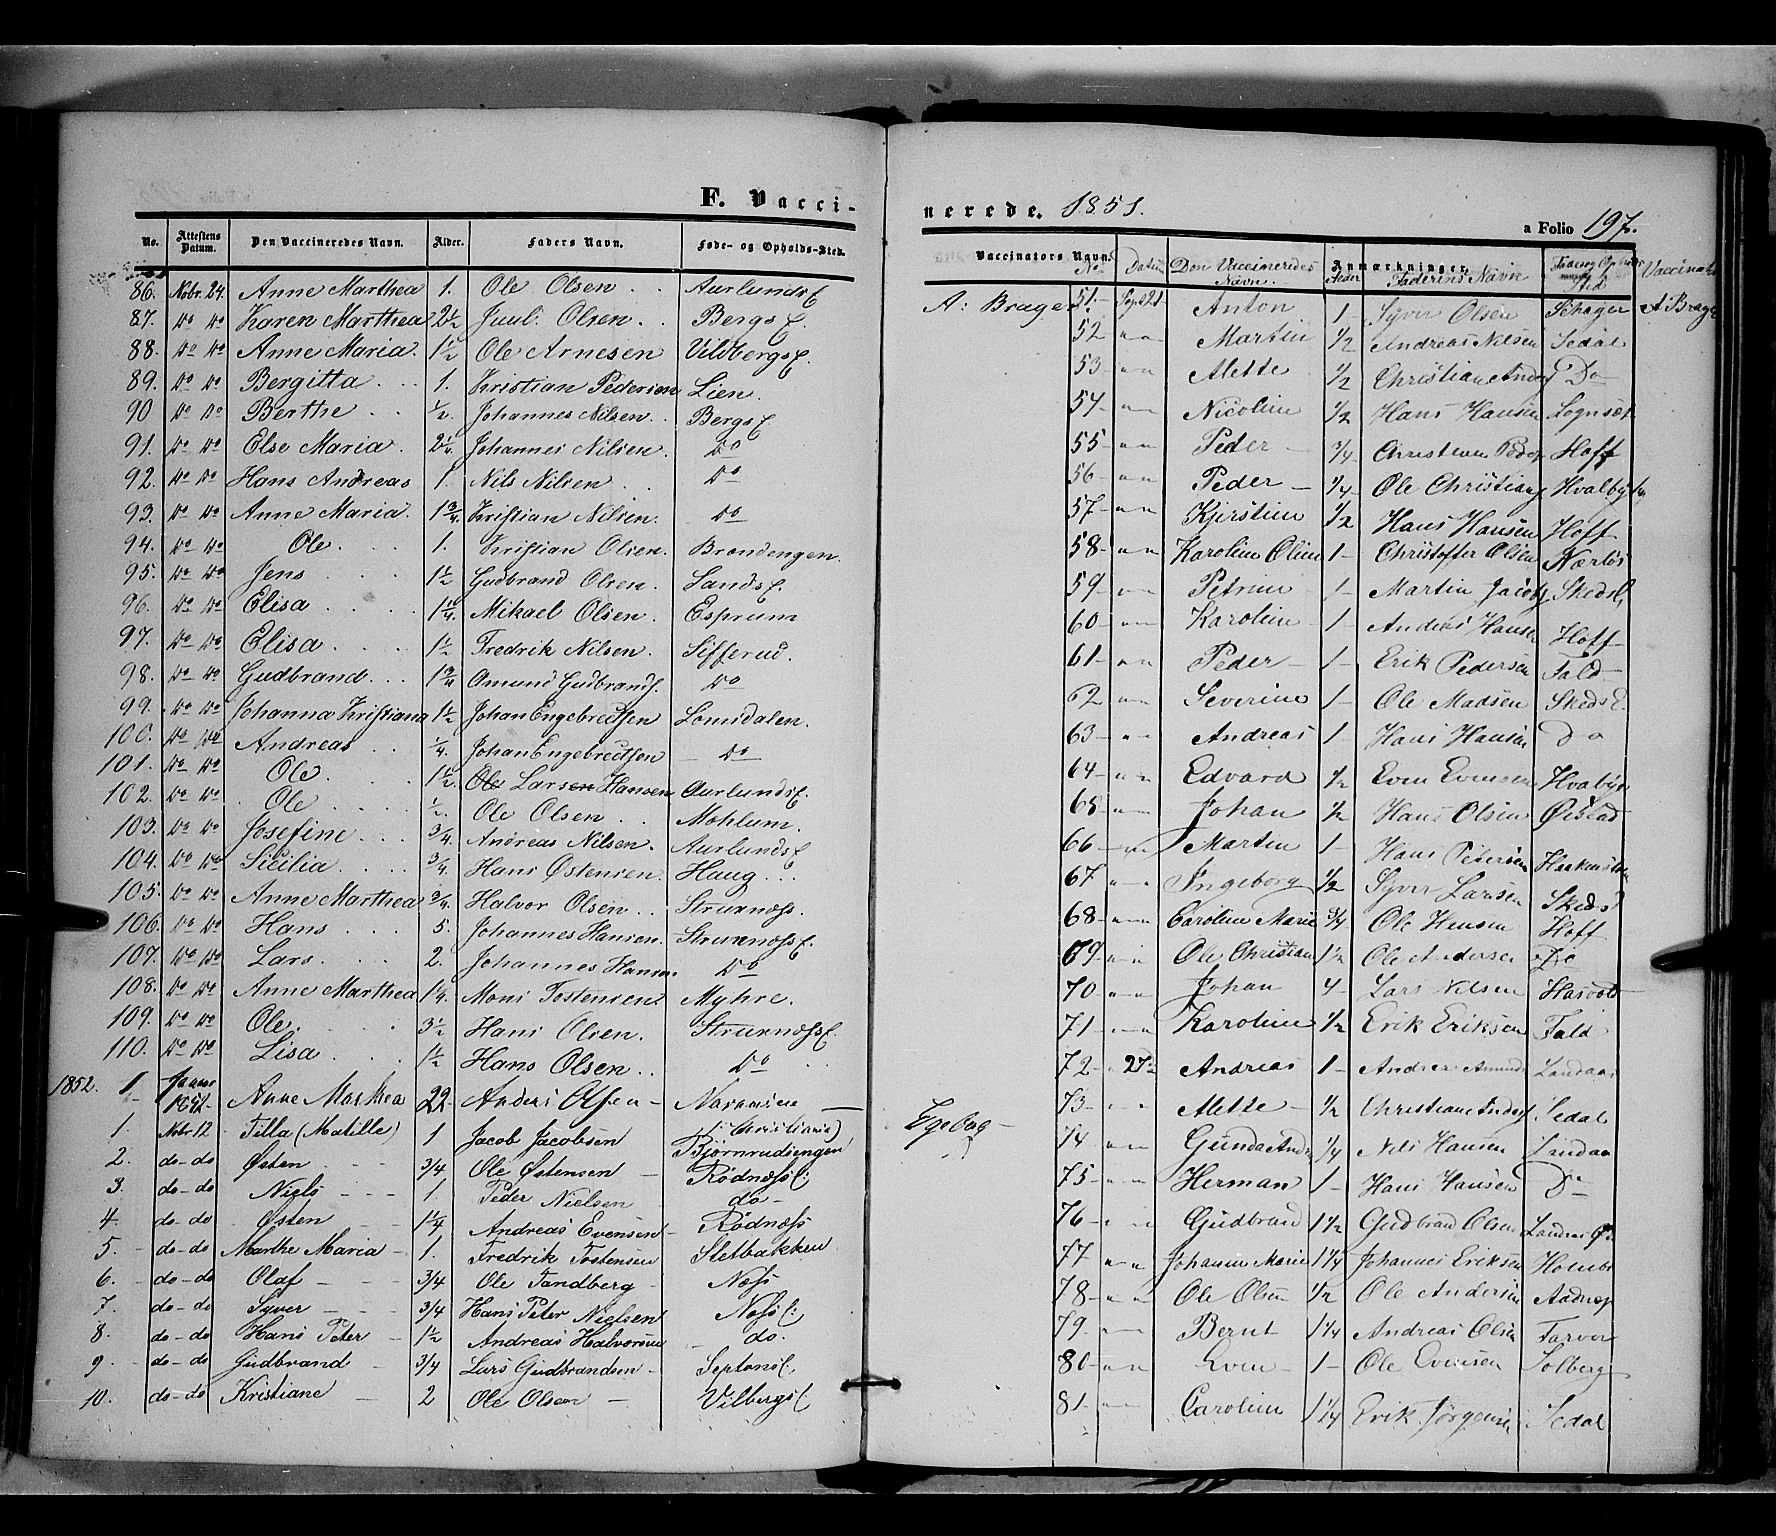 F. Vacci-
No. Attestens Datum. Den Vaccineredes Navn. Alder. Faders Navn. Føde- og Opholds-Sted.
86. Nobr. 24. Anne Marthea 1. Ole Olsen AurlundsE
87. Do Do Karen Marthea 2½ Juul Olsen BergsE.
88. Do Do Anne Maria. 1½ Ole Arnesen VildbergsE.
89. Do Do Bergitta 1. Kristian Pedersen Lien.
90 Do Do Berthe ½. Johannes Nilsen. BergsE
91. Do Do Else Maria 2¼. Johannes Nilsen. Do
92. Do Do Hans Andreas 1. Nils Nilsen Do
93. Do Do Anne Maria. 1¾. Kristian Nilsen. Do
94. Do Do Ole. 1. Kristian Olsen. Brændengen
95. Do Do Jens 1½ Gudbrand Olsen. SandsE.
96. Do Do Elisa 1¼. Mikael Olsen. Esprum
97. Do Do Elisa 1½ Fredrik Nilsen. Sifferud.
98. Do Do Gudbrand 1¾ Omund Gudbrands. Do
99. Do Do Johanna Kristiana 1½ Johan Engebredtsen Lomsdalen.
100. Do Do Andreas ¼. Johan Engebredtsen Do
101. Do Do Ole. 1½ Ole Larsen Hansen AurlundsE.
102. Do Do Ole ½. Ole Olsen Mohlum.
103. Do Do Josefine ¾. Andreas Nilsen. AurlundsE
104. Do Do Sicilia ¾. Hans Østensen. Haug
105. Do Do Anne Marthea ¾. Halvor Olsen Struxnæss.
106. Do Do Hans 5. Johannes Hansen. StruxnæssE.
107. Do Do Lars 2. Johannes Hansen Do
108. Do Do Anne Marthea 1¼. Mons Tostensens Myhre.
109. Do Do Ole. 3½ Hans Olsen. StruxnæssE.
110. Do Do Lisa 1½ Hans Olsen Do
1852. 1 Januar Anne Marthea 22 Anders Olsen
1. Nobr 12 Tilla (Matille) 1 Jacob Jacobsen (Christiania) Bjørnrudsengen
2. do-do Østen ¾ Ole Østensen RødnæssE.
3. do-do Niels 1. Peder Nielsen do-
4. do-do Østen 1¼ Andreas Evensen Rødnæss
5. do-do Marthe Maria 1. Fredrik Tostensen Sletbakken
6. do-do Olaf ¾ Ole Sandberg Næss
7. do-do Syver ¾ Hans Peter Nielsen NæsSE.
8. do-do Hans Peter 1½ Andreas Halvorsen do.
9 do-do Gudbrand ¾ Lars Gudbrandsen
10. do-do Kristiane 2 Ole Olsen VilbergsE
nerede. 1851.
a Folio 197.
Vaccinators Navn. Anmærkninger.
No Datum Den Vaccineredes Navn. Alder Faderens Navn Sted
A: Brager. 51. Sept 21 Anton 1 Syver Olsen Schager A. Brager
52 Martin ½ Andreas Nilsen Sedal
53 Alette ½ Christian Anders Do
54 Nicoline ½ Hans Hansen
55 Peder ¾ Christian Peders Hoff
56 Peder ¼ Ole Christians
57 Kjerstine ½ Hans Hansen Hoff
58 Karoline Oline 1 Christoffer Olsen
59 Petrine 1 Martin Jacobs
60 Karoline 1 Anders Hansen Hoff
61 Peder 1 Erik Pedersen Fald
62 Severine 1 Ole Madsen SkedsE.
63 Andreas 1 Hans Hansen Do
64 Edvard ½ Even Evensen
65 Johan ½ Hans Olsen
66 Martin 1 Hans Petersen
67 Ingeborg ½ Syver Larsen Skeds
68 Caroline Marie ¾ Ole Hansen Hoff
69 Ole Christian 1½ Ole Andersen Do
70 Johan 4 Lars Nilsen
71 Karoline ½ Erik Eriksen Fald
72 27 Andreas 1 Landaas
73 Alette ½ Christian Anders. Sedal
Egeberg 74 Gunda ¼ Nils Hansen Landaas
75 Herman 1 Hans Hansen Do
76 Gudbrand 1½ Gudbrand Olsen
77 Johanne Marie 1¼ Johannes Eriksen
78 Ole Olsen ½ Ole Andersen
79 Bernt 1¼ Andreas Olsen
80 Even 1 Ole Evensen Solberg
81 Caroline 1¼ Erik Jørgensen Sedal